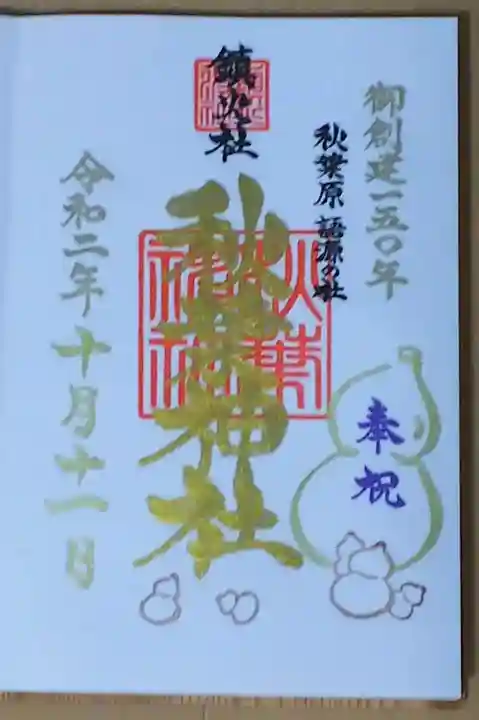 御創建一五〇年
秋葉原 語源の社
鎮火社
秋葉神社
奉祝
令和二年十月十一日